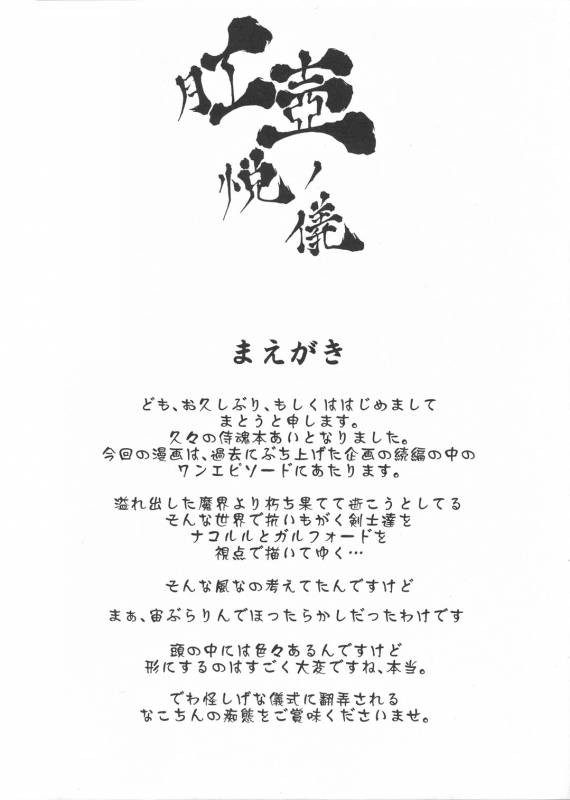 肛壺ノ悦儀
まえがき
ども、お久しぶり、もしくははじめまして
まとうと申します。
久々の侍魂本あいとなりました。
今回の漫画は、過去にぶち上げた企画の続編の中の
ワンエピソードにあたります。
溢れ出した魔界より朽ち果てて逝こうとしてる
そんな世界で抗いもがく剣士達を
ナコルルとガルフォードを
視点で描いてゆく…
そんな風なの考えてたんですけど
まぁ、宙ぶらりんでほったらかしだったわけです
頭の中には色々あるんですけど
形にするのはすごく大変ですね、本当。
でわ怪しげな儀式に翻弄される
なこちんの痴態をご賞味くださいませ。